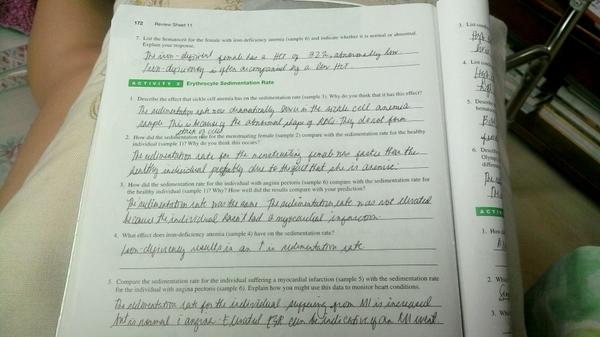 172 Review Sheet 11
7. List the hematocrit for the female with iron-deficiency anemia (sample 6) and indicate whether it is normal or abnormal.
Explain your response.
The iron-deficient female has a HCT of 32%, abnormally low
Iron-deficiency is often accompanied by a low HCT.
ACTIVITY 2 Erythrocyte Sedimentation Rate
1. Describe the effect that sickle cell anemia has on the sedimentation rate (sample 3). Why do you think that it has this effect?
The sedimentation rate was dramatically lower in the sickle cell anemia
sample. This is because of the abnormal shape of RBCs. They do not form
stack of cell
2. How did the sedimentation rate for the menstruating female (sample 2) compare with the sedimentation rate for the healthy
individual (sample 1)? Why do you think this occurs?
The sedimentation rate for the menstruating female was faster than the
healthy individual probably due to the fact that she is anemic.
3. How did the sedimentation rate for the individual with angina pectoris (sample 6) compare with the sedimentation rate for
the healthy individual (sample 1)? Why? How well did the results compare with your prediction?
The sedimentation rate was the same. The sedimentation rate was not elevated
because the individual hasn't had a myocardial infarction
4. What effect does iron-deficiency anemia (sample 4) have on the sedimentation rate?
Iron-deficiency results in an ↑ in sedimentation rate
5. Compare the sedimentation rate for the individual suffering a myocardial infarction (sample 5) with the sedimentation rate
for the individual with angina pectoris (sample 6). Explain how you might use this data to monitor heart conditions.
The sedimentation rate for the individual suffering from MI is increased
but is normal angina. Elevated ESR can be indicative of an MI event.
3. List
4. List
5. Describe
6. Describe
Olympic
ACTI
1. How
2. Why
3. Whi